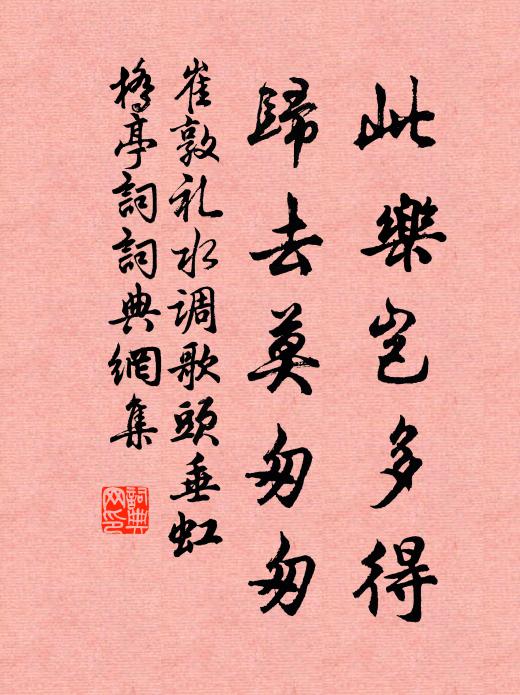 此樂豈多得
歸去莫匆匆
崔敦礼水调歌頭垂虹
橋亭詞詞典網集
詞典
网印